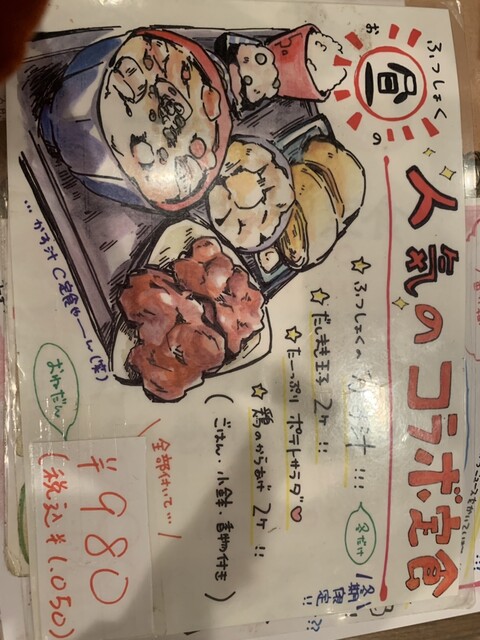 ふっしょく
お昼の
人気の コラボ定食
冬期
限定!!
☆ふっしょくの 汁!!!
冬だけ
☆だしまき玉子 2ヶ!!
☆たーっぷり ポテトサラダ♡
☆鶏のからあげ 2ヶ!!
(ごはん・小鉢・香物付き)
全部付いて…
おねだん
¥980
(税込¥1,050)
…かす汁 C定食やーん(笑)